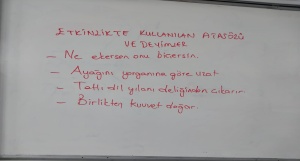 ETKİNLİKTE KULLANILAN ATASÖZÜ
VE DEYİMLER
- Ne ekersen onu biçersin.
- Ayağını yorganına göre uzat
- Tatlı dil yılanı deliğinden çıkarır.
- Birlikten kuvvet doğar.